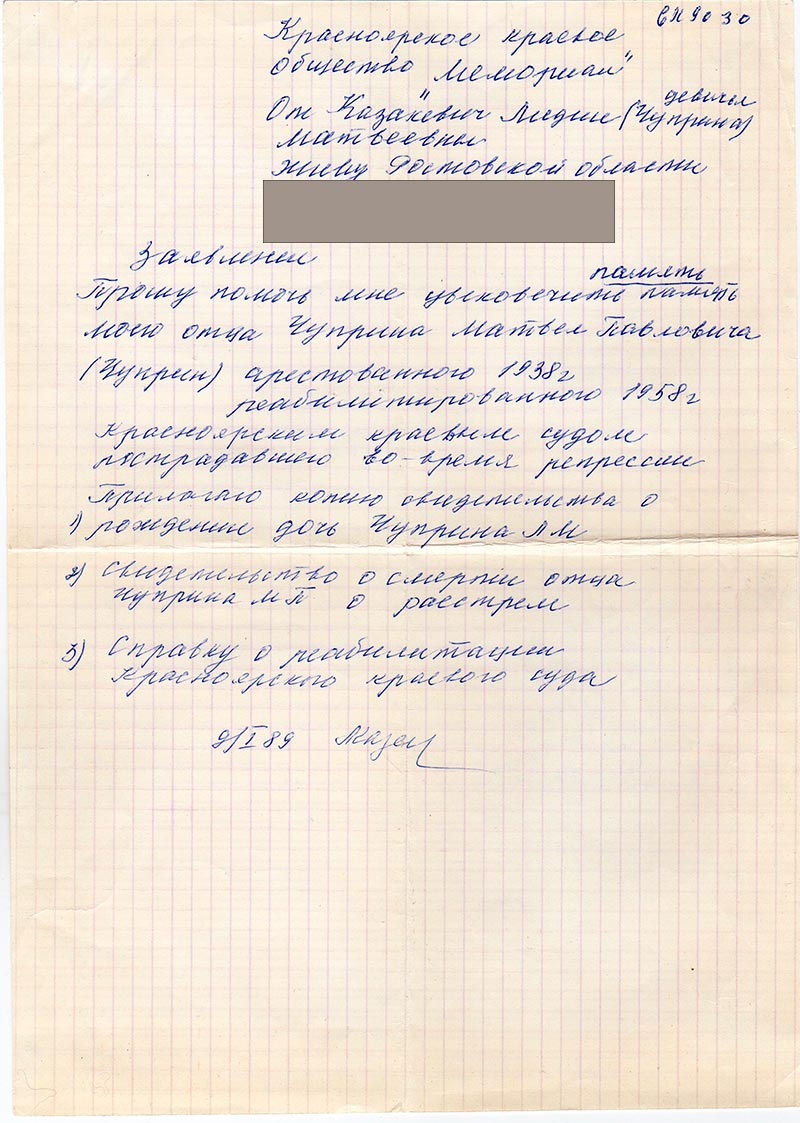 СК9030
Красноярское краевое
Общество "Мемориал"
От Казакевич Лидии (девичья Чуприна)
Матвеевны
живу Ростовской области
Заявлении
память
Прошу помочь мне увековечить память
моего отца Чуприна Матвея Павловича
(Чуприн) арестованного 1938г
реабилитированного 1958г
Красноярским краевым судом
пострадавшего во-время репрессии
Прилагаю копию свидетельства о
1) рождении дочь Чуприна ЛМ
2) Свидетельство о смерти отца
Чуприна МП о расстреле
3) Справку о реабилитации
Красноярского краевого суда
9/I 89